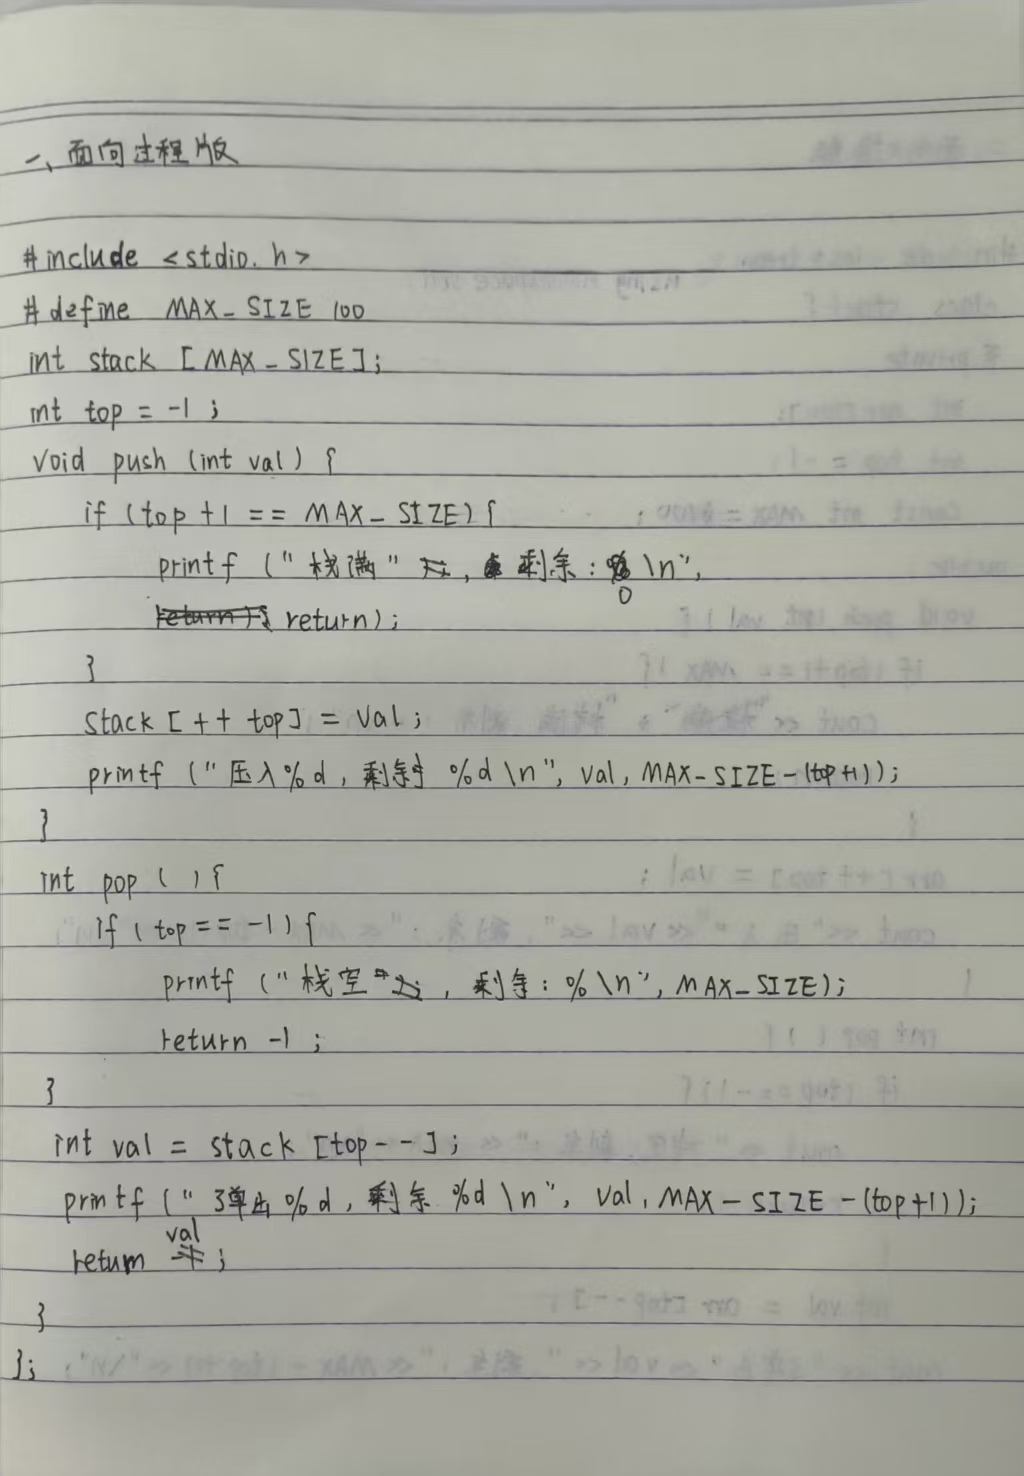 一、面向过程版
#include <stdio.h>
#define MAX_SIZE 100
int stack [MAX_SIZE];
int top = -1;
void push (int val) {
if (top +1 == MAX_SIZE) {
printf ("栈满" , 剩余: 0 \n",
return);
}
stack [++ top] = val;
printf ("压入%d, 剩余 %d \n", val, MAX-SIZE-(top+1));
}
int pop () {
if (top == -1) {
printf ("栈空" , 剩余: % \n", MAX_SIZE);
return -1 ;
}
int val = stack [top--];
printf ("弹出 %d, 剩余 %d \n", val, MAX-SIZE -(top+1));
return val ;
}
};